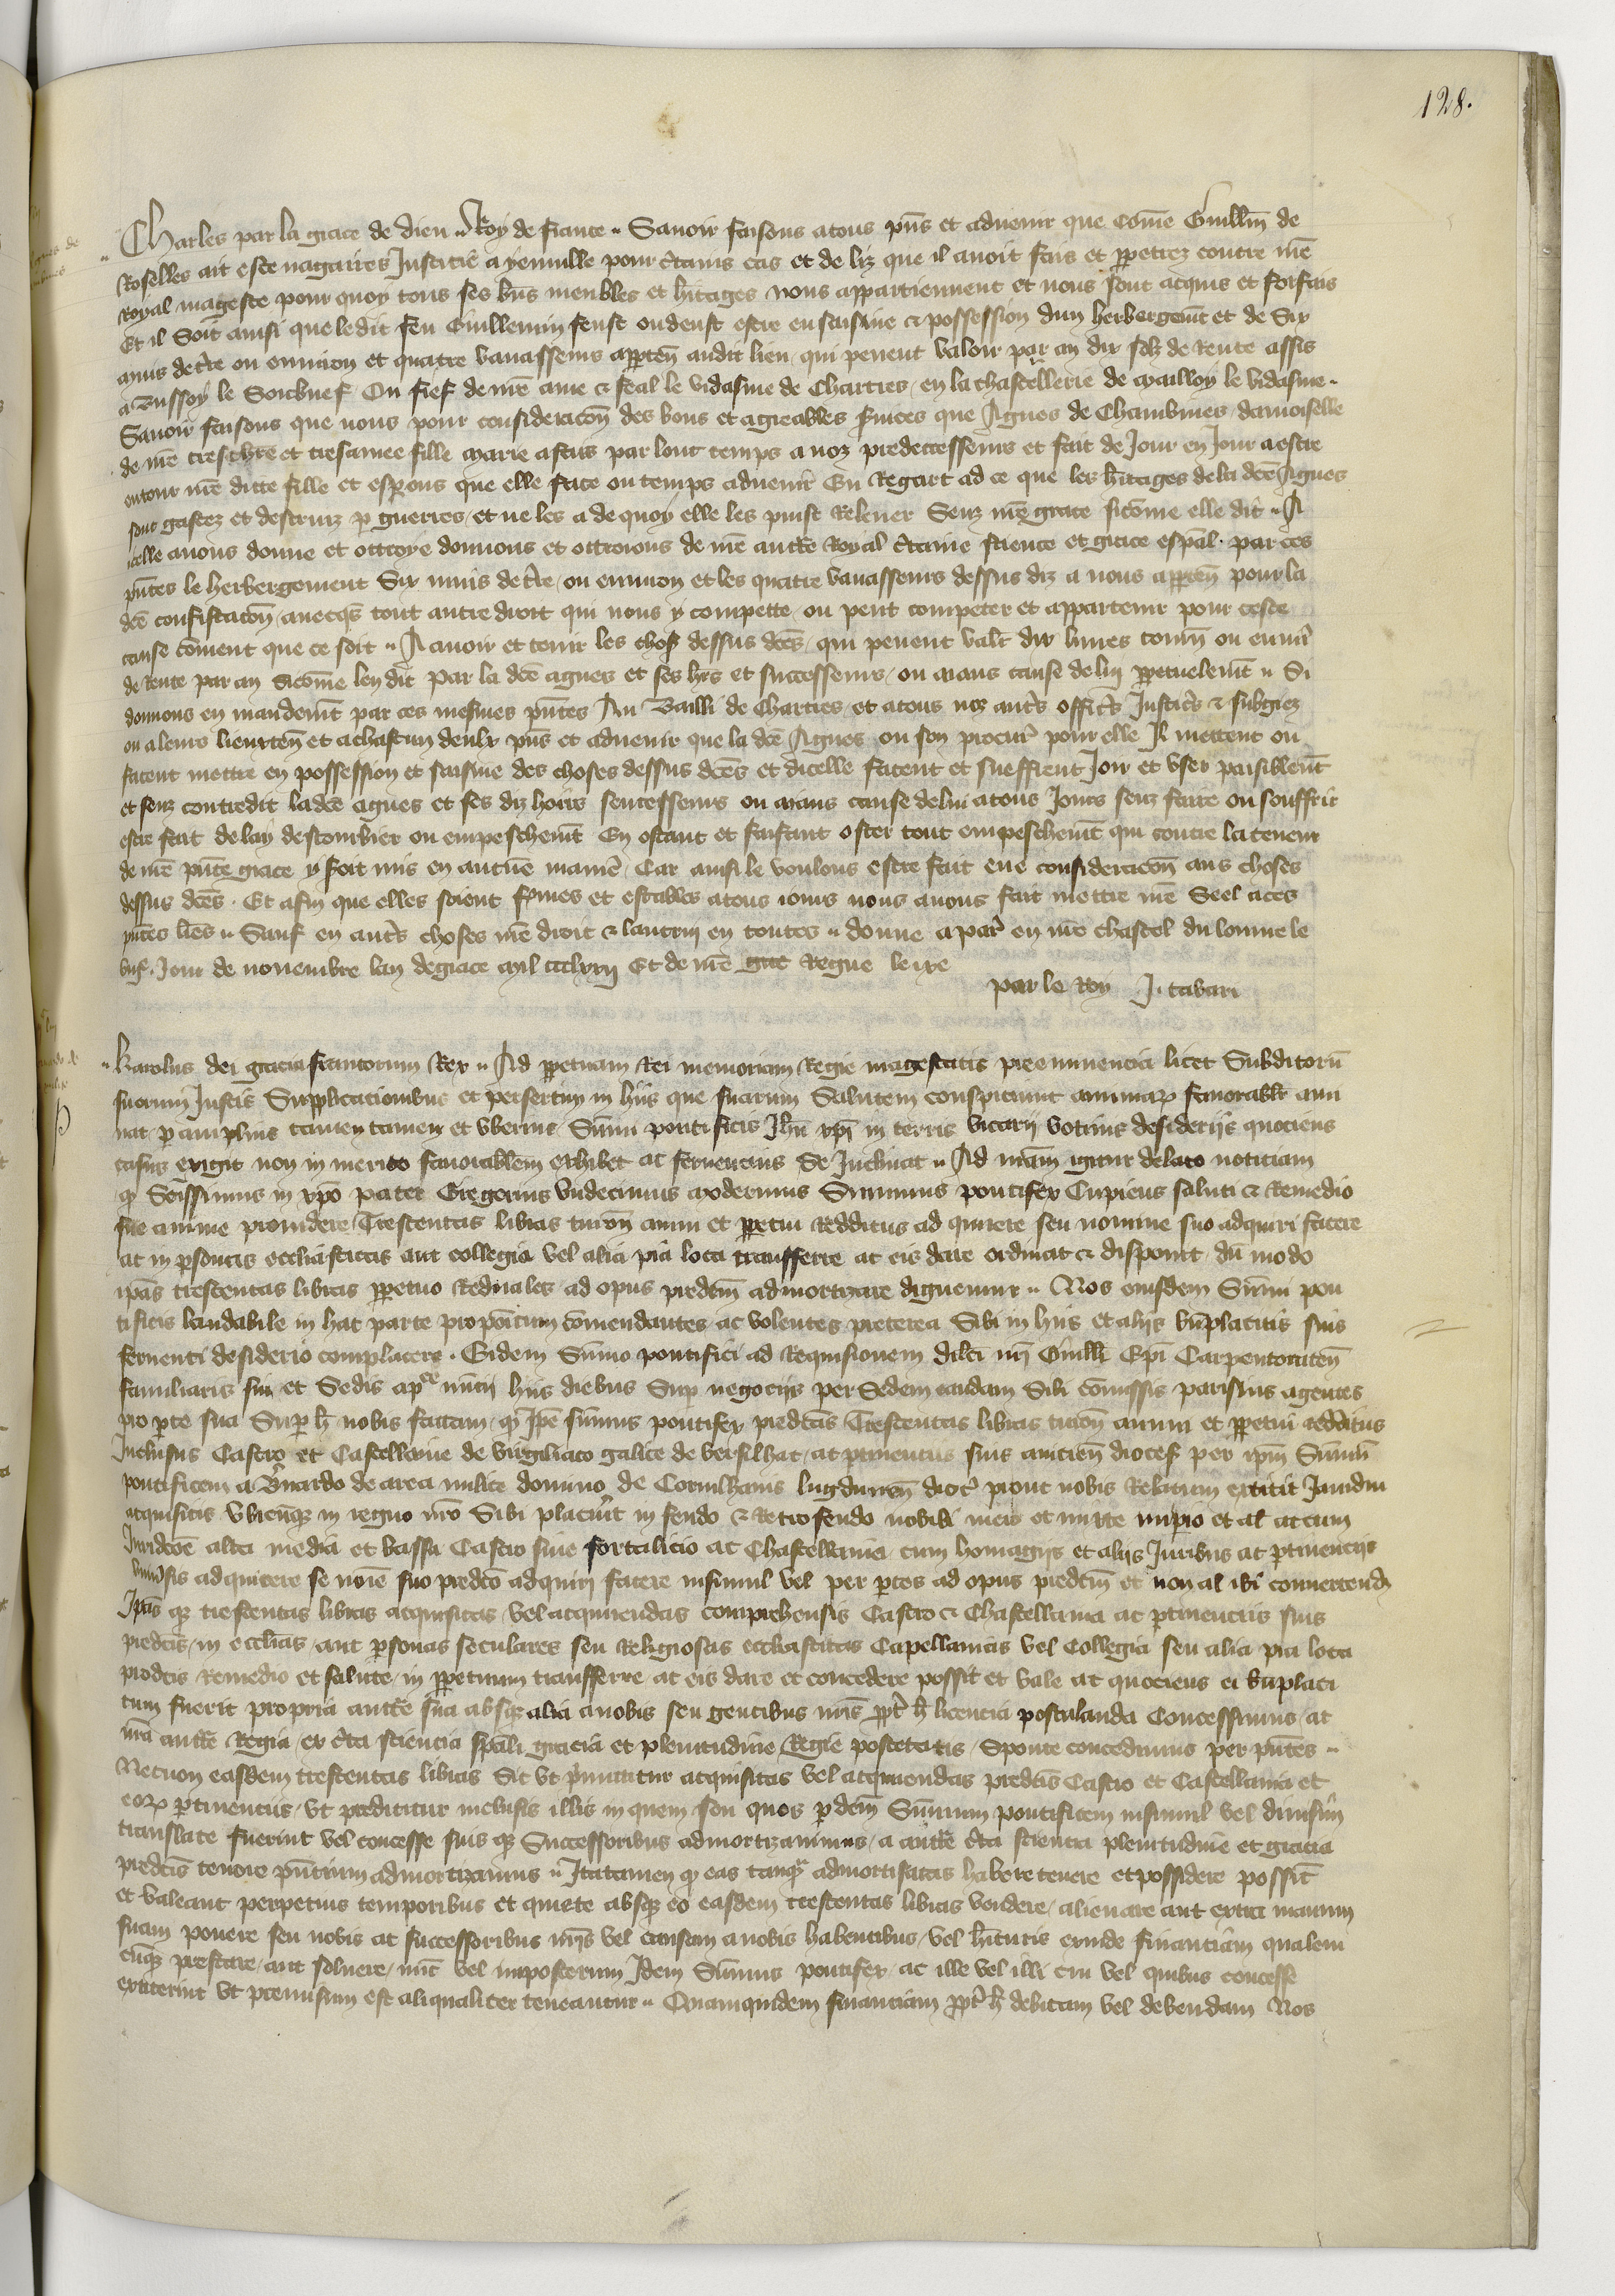 128.
Charles par la grace de dieu Roy de france Sauoir faisons a tous pñs et aduenir que cõme Guillm̃ de
Roselles ait este nagaires Justicie a yenuille pour c̃tains cas et deliz que il auoit fais et ꝑpetrez contre nr̃e
Royal mageste pour quoy tous ses bñs meubles et h̃itages nous appartiennent et nous sont acquis et forfais
Et il soit ainsi que ledit feu Guillemin feust ou deust estre en saisine et possession dun herbergem̃t et de Six
muis de t̃re ou enuiron et quatre vauasseurs apꝑten̄ audit lieu qui peuent valoir par an dix solz de Rente assis
a Bussoy le ou fief de nr̃e ame et feal le vidasme de Chartres en la chastellerie de mailloy le vidasme
Sauoir faisons que nous pour consideracõn des bons et agreables s̃uices que Agnes de Chambines damoiselle
de nr̃e treschr̃e et tresamee fille marie a fais par lonc temps a noz predecesseurs et fait de Jour en Jour a estre
entour nr̃e ditte fille et esꝑons que elle face ou temps aduenir En Regart ad ce que les h̃itages de la dc̃e Agnes
sont gastez et destruiz ꝑ guerres et ne les a de quoy elle les puist Releuer Senz nr̃e grace sicõme elle dit A
icelle auons donne et ottroye donnons et ottroions de nr̃e auctẽ Royal c̃taine science et grace esp̃al par ces
pñtes le herbergement Six muis de t̃re ou enuiron et les quatre vauasseurs dessus diz a nous apꝑten̄ pour la
dc̃e confiscacõn auecq̃s tout autre droit qui nous y compette ou peut competer et appartenir pour ceste
cause cõment que ce soit A auoir et tenir les chos̃ dessus dc̃es qui peuent valr̃ dix liures tourn̄ ou enuir̃
de Rente par an Sicõme len dit par la dc̃e agnes et ses hr̃s et successeurs ou aians cause de luy ꝑpetuelem̃t Si
donnons en mandem̃t par ces mesmes pñtes Au Bailli de Chartres et a tous noz autr̃s offic̃s Justic̃s et subgiez
ou a leurs lieuxten̄ et a chascun deulx pñs et aduenir que la dc̃e Agnes ou son procur̃ pour elle Il mettent ou
facent mettre en possession et saisine des choses dessus dc̃es et dicelle facent et sueffrent Joir et vser paisiblem̃t
et senz contredit ladc̃e agnes et ses diz hoirs successeurs ou aians cause de lui a tous Jours senz faire ou souffrir
estre fait delay destourbier ou empeschem̃t En ostant et faisant oster tout empeschem̃t qui contre la teneur
de nr̃e pñte grace y seroit mis en aucune manie᷑ Car ainsi le voulons estre fait eue consideracion aus choses
dessus dc̃es Et afin que elles soient fermes et estables a tous iours nous auons fait mettre nr̃e Seel a ces
pñtes lr̃es Sauf en autr̃s choses nr̃e droit et lautruy en toutes donne a par̃ en nr̃e chastel du louure le
Jour de nouembre lan de grace mil ccclxxij Et de nr̃e Regne le ixe
par le Roy J. tabari
Karolus dei gracia francorum Rex Ad ꝑpetuam Rei memoriam Regie magestatis preeminencia licet Subditoru᷑
suorum Justis Supplicacionibus et presertim in hiis que suarum Salutem conspiciunt animaꝝ fauorabilr̃ ann
uat ꝑ amplius tamen tamen et vberius Sum̃i pontificis Jh̃u xp̃i in terris vicarij votiuis desiderijs quociens
casus exigit non in merito fauorabilem exhibet ac feruencius Se Inclinat Ad nr̃am igitur delato noticiam
ꝙ Sc̃issimus in xp̃o pater Gregorius vndecimus modernus Summus pontifex Cupiens saluti et Remedio
sue anime prouidere Trescentas libras turon̄ annui et ꝑpetui Redditus adquirere seu nomine suo adquiri facere
ac in ꝑsonas ecclesiasticas aut collegia vel alia pia loca transfferre ac eis dare ordinat et disponit du᷑ modo
ip̃as trescentas libras ꝑpetuo Redituales ad opus predc̃m admortizare dignemur Nos eiusdem Sum̃i pon
tificis laudabile in hac parte propõitum cõmendantes ac volentes preterea Sibi in hiis et alijs bn̄placitis suis
feruenti desiderio complacere Eidem Sum̃o pontifici ad Requisicionem dilc̃i nr̃i Guill̃i Ep̃i Carpentoraten̄
familiaris sui et Sedis ap̃ce nuncij hiis diebus Suꝑ negocijs per Sedem eandem Sibi cõmissis parisius agentis
pro ꝑte sua Suꝑ h̃ nobis factam ꝙ Ip̃e sum̃us pontifex predc̃as Trescentas libras turon̄ annui et ꝑpetui redditus
Inclusis Castro et Castellanie de virgiliaco galice de versilhac ac ꝑtinenciis suis aniciēn dioces̃ per ip̃m Sum̃u᷑
pontificem a B̃nardo de area milite domino de Cornilhanis lugdunen̄ dioc̃ prout nobis Relatum extitit Jamdiu
acquisitis vbicunq̃ in regno nr̃o Sibi placuer̃it in feudo et Retrofeudo nobili mero et mixto imperio et al ac cum
Juridc̃õe alta media et bassa Castro siue fortalicio ac Chastellania cum homagijs et alijs Juribus ac ꝑtinencijs
vniu᷑sis adquirere se noı᷑e suo predc̃o adquiri facere insimul vel per ꝑtes ad opus predc̃m et non al ibi conuertend̃
Ip̃as q̃ trescentas libras acquisitas vel acquirendas comprehensis Castro et Chastellania ac ꝑtinenciis suis
predc̃is in ecclesias aut ꝑsonas seculares seu Religiosas ecclesiasticas Capellanias vel Collegia seu alia pia loca
predc̃is Remedio et salute in ꝑpetuum transfferre ac eis dare et concedere possit et valeat quociens ei bn̄placi
tum fuerit propria auctẽ sua absq̃ alia a nobis seu gentibus nr̃is ꝓpt̃ h̃ licencia postulanda Concessimus ac
nr̃a auctẽ Regia ex c̃ta sciencia sp̃ali gracia et plenitudine Regie postetatis Sponte concedimus per pñtes
Necnon easdem trescentas libras Sic vt p̃mittitur acquisitas vel acquirendas predc̃is Castro et Castellania et
eoꝝ ꝑtinenciis vt predicitur inclusis illis in quem seu quos ꝑ dc̃m Sum̃um pontificem insimul vel diuisim
translate fuerint vel concesse suis q̃ Successoribus admortizauimus a auctẽ c̃ta sciencia plenitudine et gracia
predc̃is tenore pñcium admortizamus Ita tamen ꝙ eas tanq̃ admortisatas habere tenere et possidere possint
et valeant perpetuis temporibus et quiete absq̃ eo easdem trescentas libras vendere alienare aut extra manum
suam ponere seu nobis ac successoribus nr̃is vel causam a nobis habentibus vel h̃ituris exinde financiam qualem
cũq̃ prestare aut soluere nũc vel imposterum Idem Sum̃us pontifex ac ille vel illi cui vel quibus concesse
extiterint vt premissum est aliqualiter teneantur Quamquidem financiam ꝓpt̃ h̃ debitam vel debendam Nos